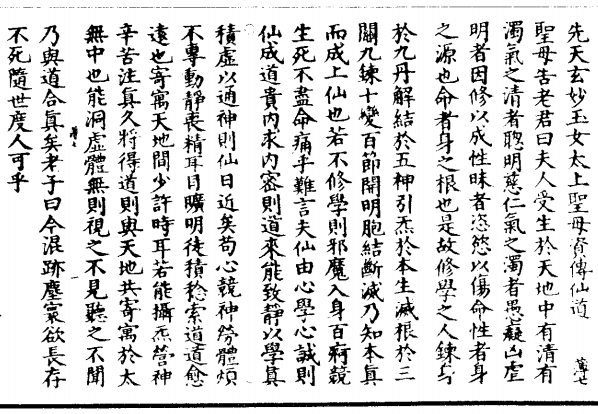 先天玄妙玉女太上聖母資傳仙道 薄七
聖母告老君曰夫人受生於天地中有清有
濁氣之清者聰明慈仁氣之濁者愚癡凶虐
明者因修以成性昧者恣慾以傷命性者身
之源也命者身之根也是故修學之人鍊身
於九丹解結於五神引炁於本生滅根於三
關九鍊十變百節開明胞結斷滅乃知本真
而成上仙也若不修學則邪魔入身百痾競
生死不盡命痛乎難言夫仙由心學心誠則
仙成道貴內求內密則道來能致靜以學真
積虛以通神則仙日近矣苟心競神勞體煩
不專動靜喪精耳目曠明徒積稔索道道愈
遠也寄寓天地間少許時耳若能攝炁營神
辛苦注真久將得道則與天地共寄寓於太
無中也能洞虛體無則視之不見聽之不聞
乃與道合真矣老子曰今混跡塵寰欲長存
不死隨世度人可乎